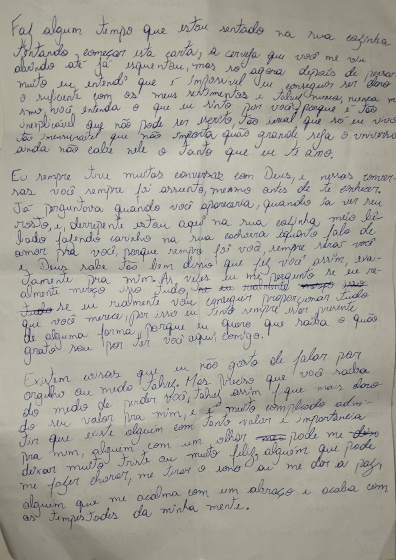 Faz algum tempo que estou sentado na sua cozinha
tentando começar esta carta, a cerveja que você me viu
abrindo até já esquentou, mas só agora depois de pensar
muito eu entendo que é impossível eu conseguir ser claro
o suficiente com os meus sentimentos e talvez nunca, nessa
você entenda o que eu sinto por você, porque é tão
inexplicável que não pode ser escrito, tão
tão que não importa quão grande seja o universo
ainda não cabe nele o tanto que eu te amo.
Eu sempre tive muitas conversas com Deus, e nessas conver-
sas você sempre foi assunto, mesmo antes de te conhecer.
Já perguntava quando você apareceria, quando ia ver seu
rosto, e derrepente estou aqui na sua cozinha, meio bê-
bado fazendo carinho na sua cachorra equanto falo de
amor pra você, porque sempre foi você, sempre será você
e Deus sabe tão bem disso que fez você assim, exa-
tamente pra mim. As vezes eu me pergunto se eu re-
almente mereço isso tudo,
se eu realmente vou conseguir proporcionar tudo
que você merece, por isso eu tento sempre estar presente
de alguma forma, porque eu quero que saiba o quão
grato sou por ter você aqui, comigo.
Existem coisas que eu não gosto de falar por
orgulho ou medo talvez. Mas preciso que você saiba
do medo de perder você, talvez assim fique mais claro
do seu valor pra mim, e é muito complicado admi-
tir que existe alguém com tanto valor e importância
pra mim, alguém com um olhar pode me
deixar muito triste ou muito feliz, alguém que pode
me fazer chorar, me tirar o sono ou me dar a paz,
alguém que me acalma com um abraço e acaba com
as tempestades da minha mente.